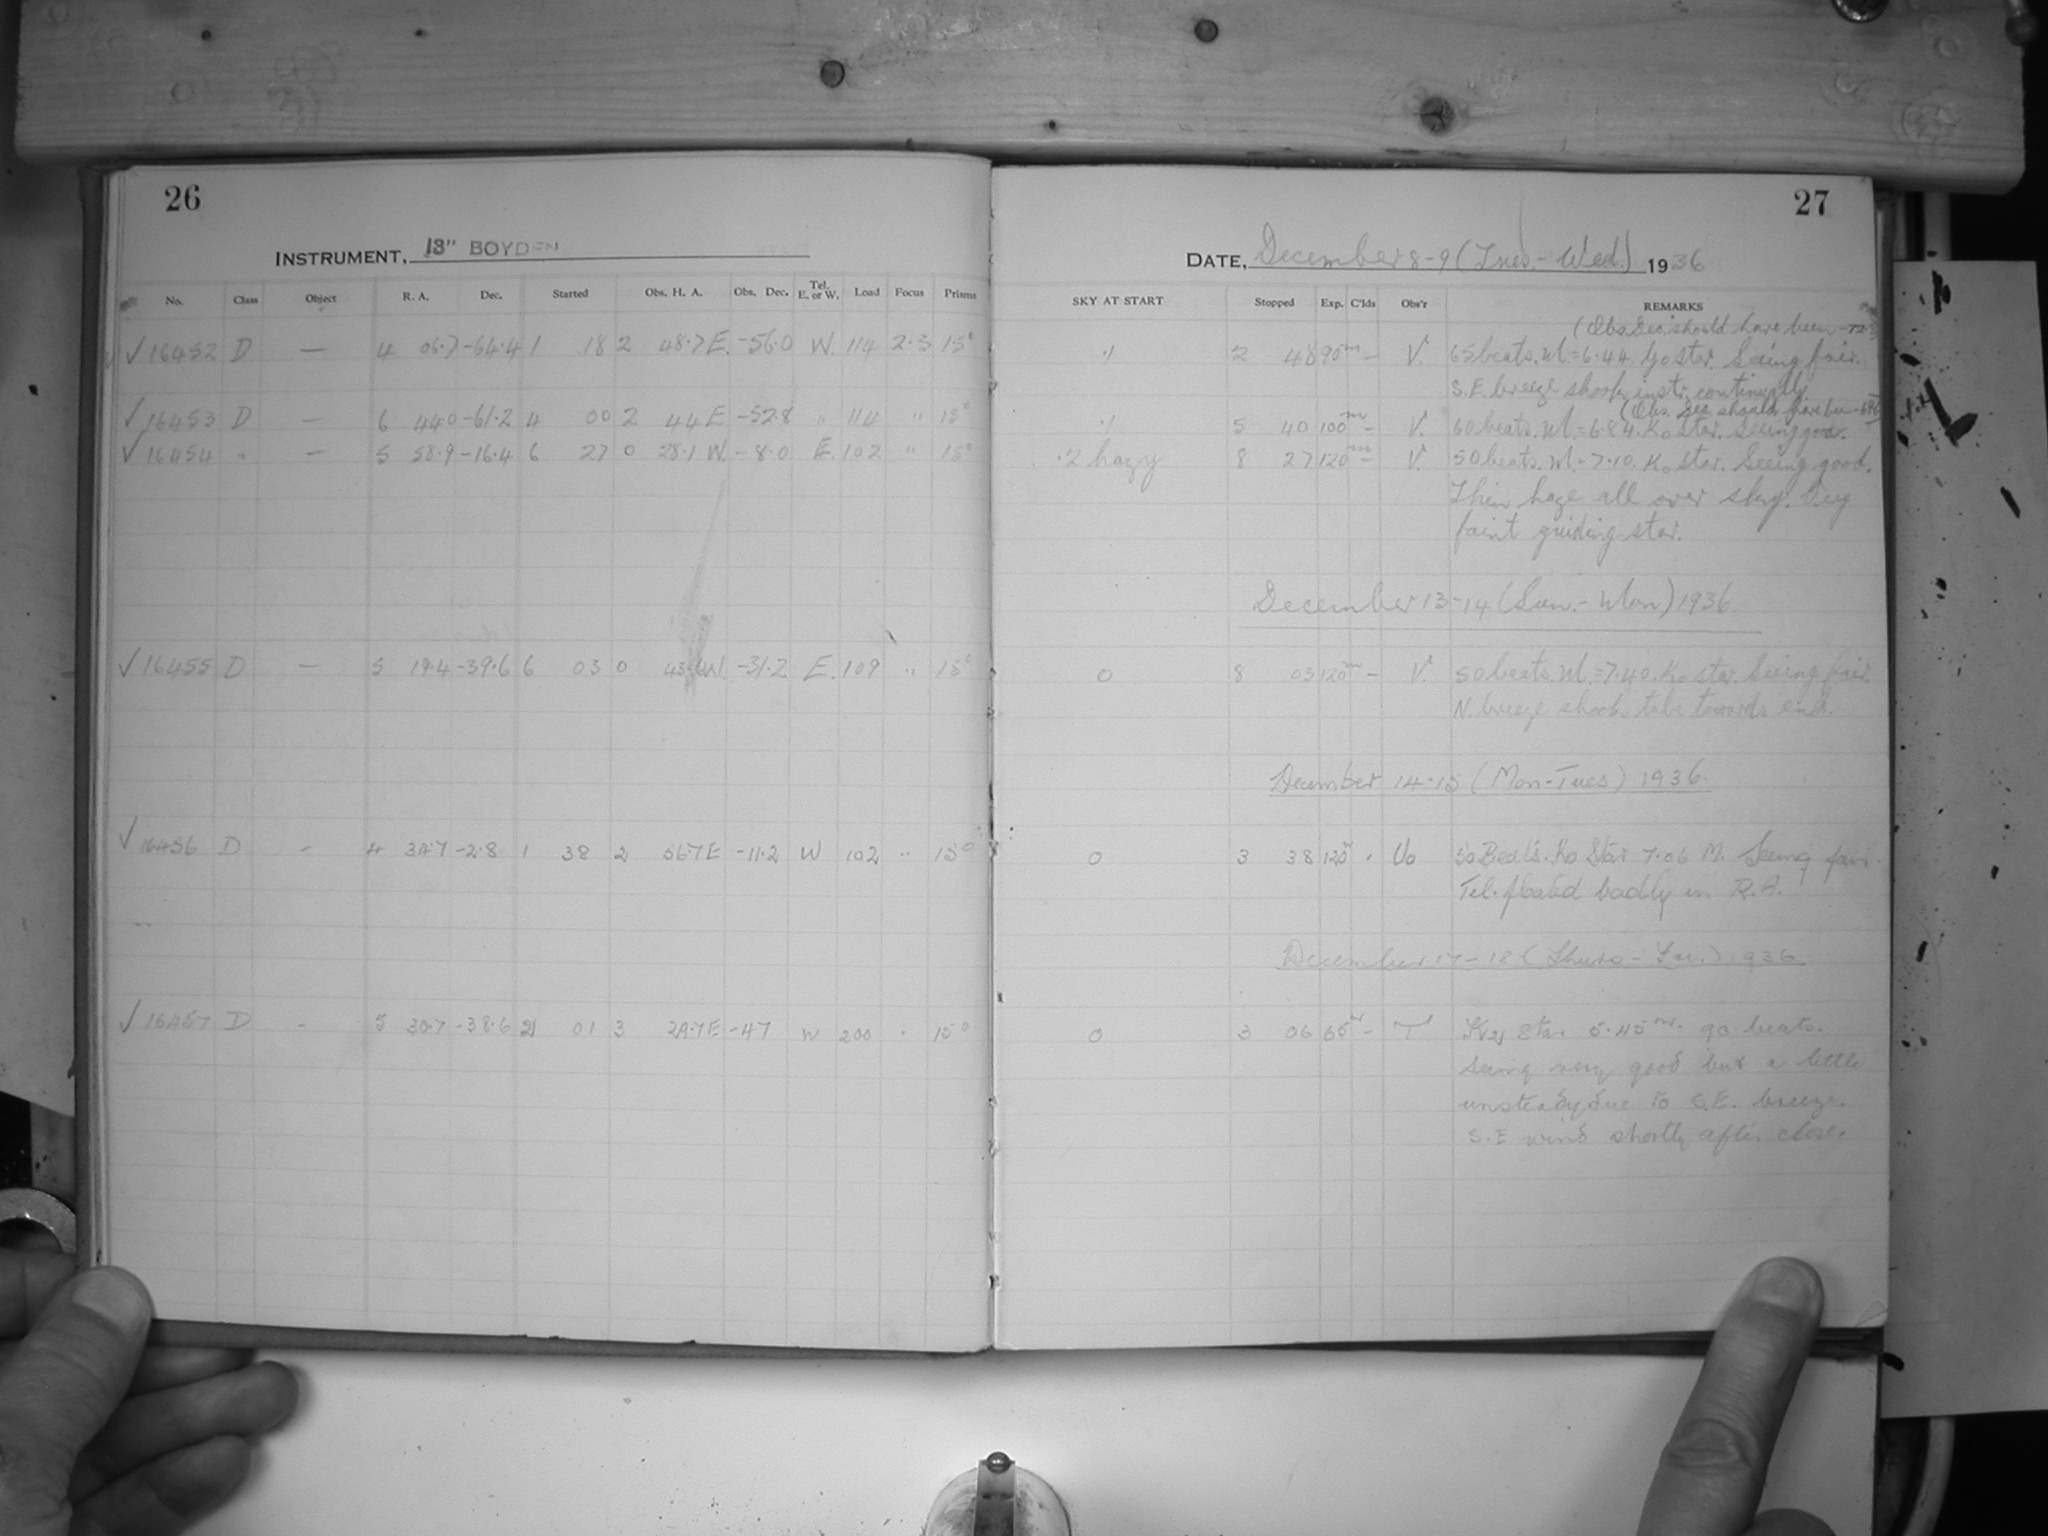 26
INSTRUMENT, 13" BOYDEN
No. Class Object R. A. Dec. Started Obs. H. A. Obs. Dec. Tel. E. or W. Load Focus Prisms
✓ 16452 D — 4 06.7 -64.4 1 18 2 48.7 E. -56.0 W. 114 2.3 15°
✓ 16453 D — 6 44.0 -61.2 4 00 2 44 E -52.8 " 114 " 15°
✓ 16454 " — 5 58.9 -16.4 6 27 0 28.1 W. -8.0 E. 102 " 15°
✓ 16455 D — 5 19.4 -39.6 6 03 0 43.6 W. -31.2 E. 109 " 15°
✓ 16456 D - 4 34.7 -2.8 1 38 2 56.7 E -11.2 W 102 " 15°
✓ 16457 D - 5 30.7 -38.6 2 01 3 24.7 E -47 W 200 " 15°
27
DATE, December 8-9 (Tues. - Wed.) 1936
SKY AT START Stopped Exp. C'lds Obs'r REMARKS
(Obs. Dec. should have been -72
.1 2 48 90m — V. 65 beats. M. = 6.44. G0 star. Seeing fair.
S.E. breeze shook instr. continually
(Obs. Dec. should have been -69
.1 5 40 100m — V. 60 beats. M. = 6.84. K0 star. Seeing good.
.2 hazy 8 27 120m — V. 50 beats. M. = 7.10. K0 star. Seeing good.
Thin haze all over sky. Very
faint guiding star.
December 13-14 (Sun. - Mon) 1936
0 8 03 120m — V. 50 beats. M. = 7.40. K0 star. Seeing fair.
N. breeze shook tube towards end.
December 14-15 (Mon-Tues) 1936.
0 3 38 120m Uo 50 Beats. K0 Star 7.06 M. Seeing fair.
Tel. floated badly in R.A.
December 17-18 (Thurs - Fri.) 1936
0 3 06 65m — T K2 Star 5.45m. 90 beats.
Seeing very good but a little
unsteady due to S.E. breeze.
S.E wind shortly after close.